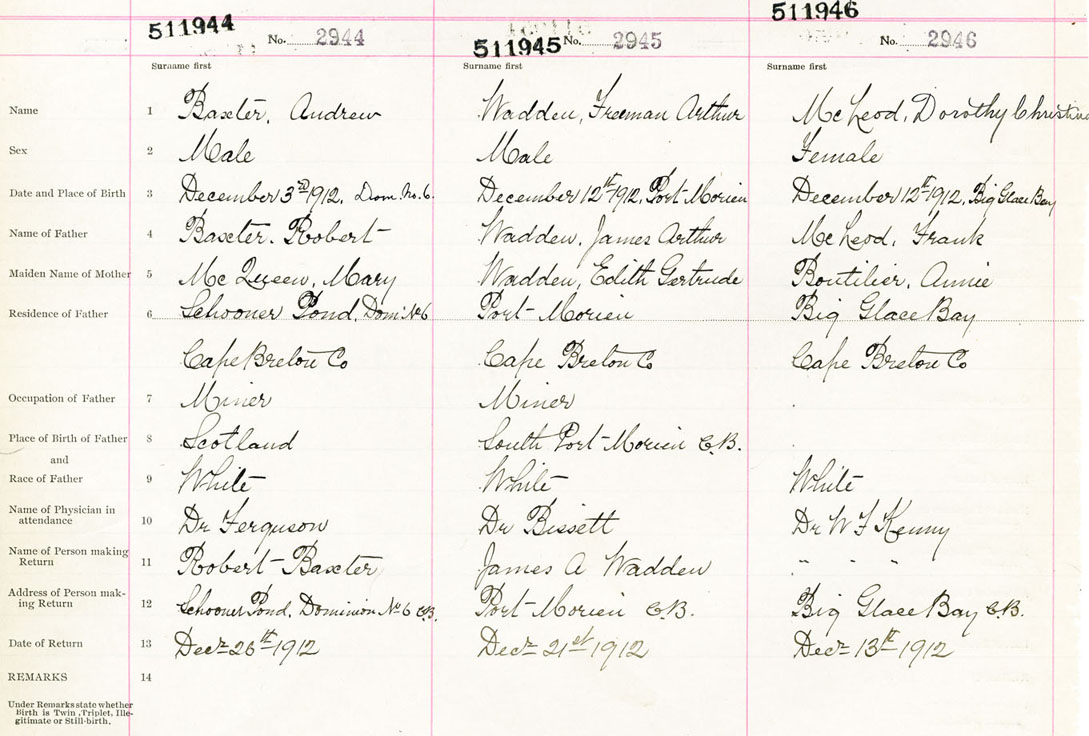 511944 No. 2944 511945 No. 2945 511946 No. 2946
Surname first Surname first Surname first
Name 1 Baxter, Andrew Wadden, Freeman Arthur McLeod, Dorothy Christina
Sex 2 Male Male Female
Date and Place of Birth 3 December 3rd 1912, Dom. No. 6. December 12th 1912, Port Morien December 12th 1912, Big Glace Bay
Name of Father 4 Baxter. Robert Wadden, James Arthur McLeod, Frank
Maiden Name of Mother 5 McQueen, Mary Wadden, Edith Gertrude Boutilier, Annie
Residence of Father 6 Schooner Pond, Dom. No 6 Port Morien Big Glace Bay
Cape Breton Co Cape Breton Co Cape Breton Co
Occupation of Father 7 Miner Miner
Place of Birth of Father 8 Scotland South Port Morien C.B.
and
Race of Father 9 White White White
Name of Physician in
attendance 10 Dr Ferguson Dr Bissett Dr W F Kenny
Name of Person making
Return 11 Robert Baxter James A Wadden " " "
Address of Person mak-
ing Return 12 Schooner Pond, Dominion No 6 C.B. Port Morien C.B. Big Glace Bay C.B.
Date of Return 13 Decr 26th 1912 Decr 21st 1912 Decr 13th 1912
REMARKS 14
Under Remarks state whether
Birth is Twin, Triplet, Ille-
gitimate or Still-birth.